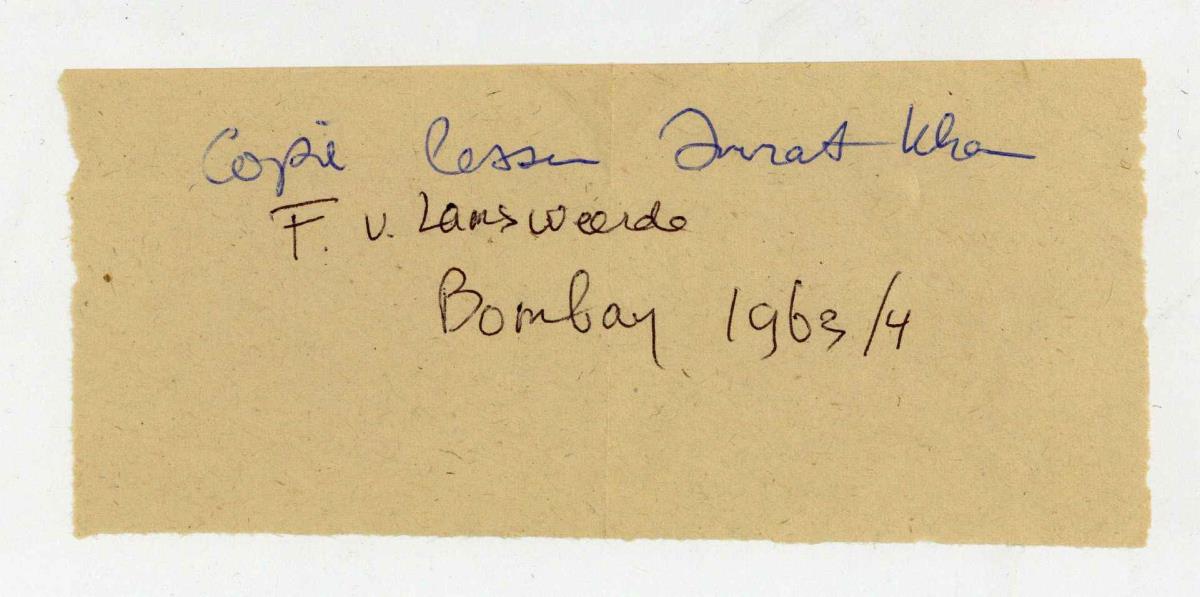 Copie lessen Imrat Khan
F. v. Lamsweerde
Bombay 1963/4